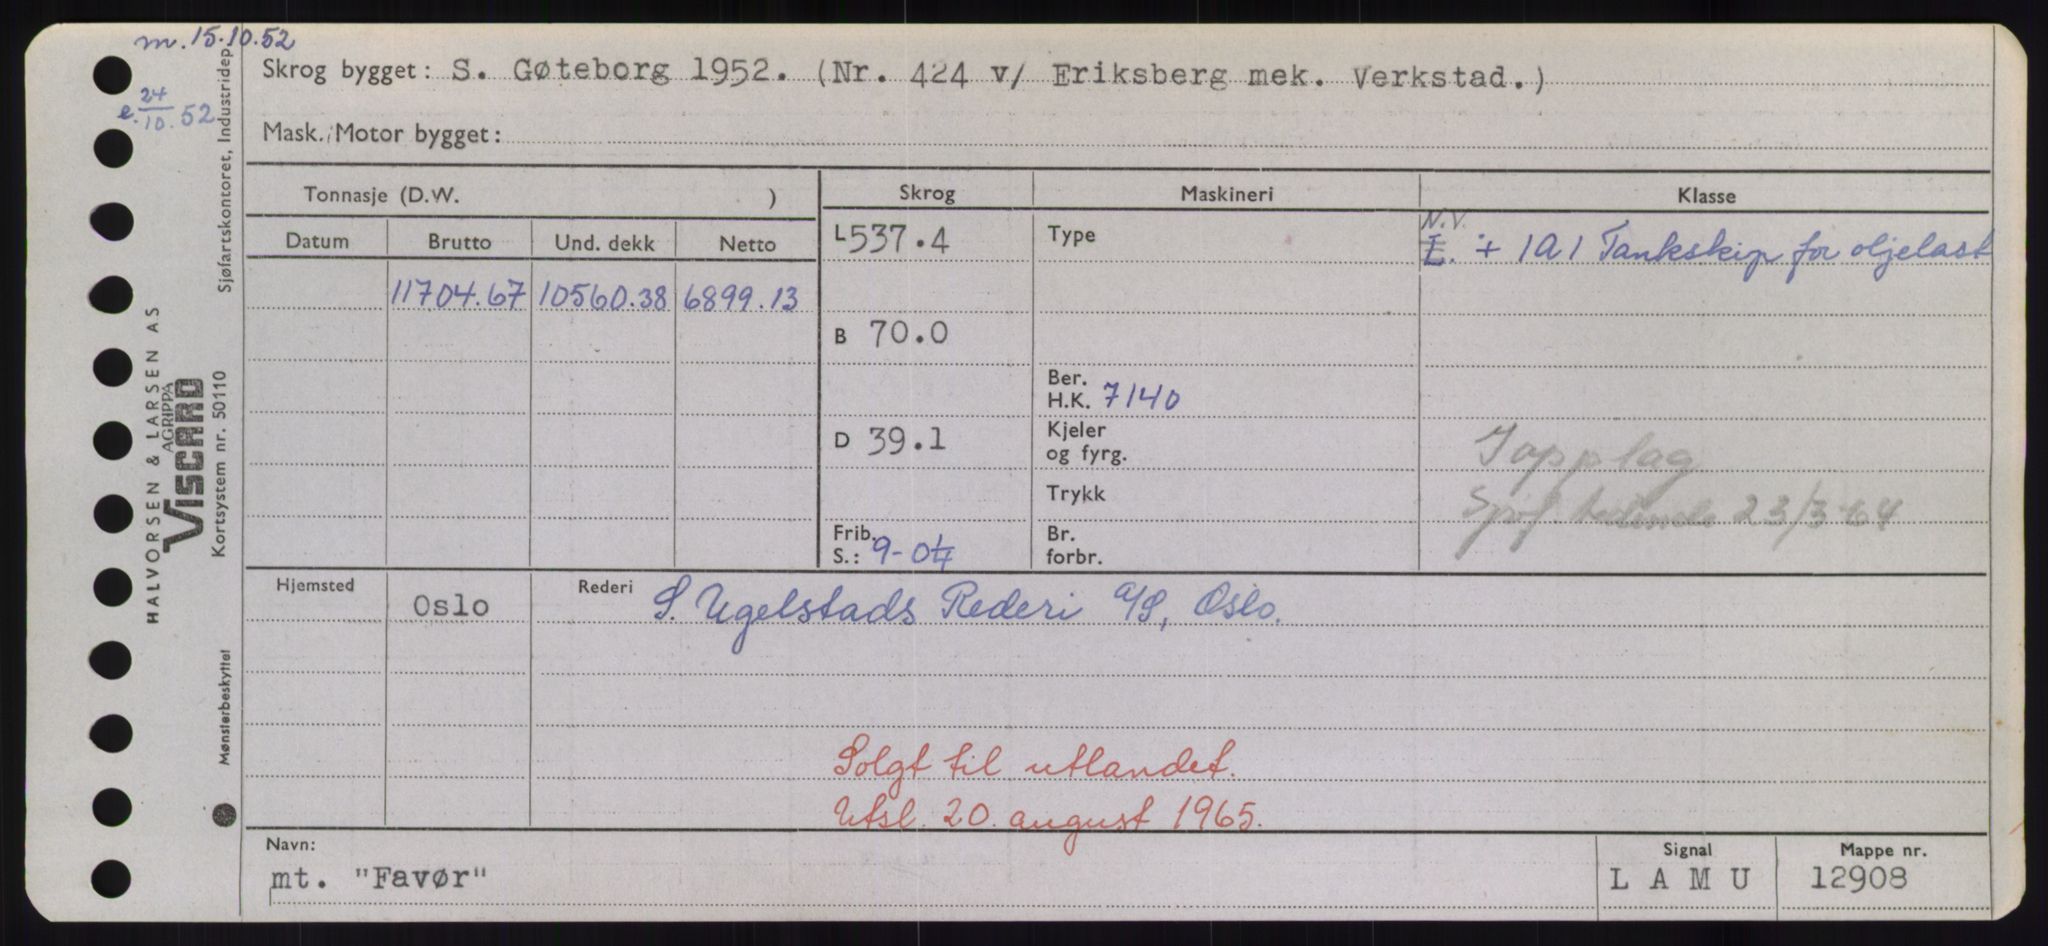 m. 15.10.52
e. 24/10.52
Skrog bygget: S. Gøteborg 1952. (Nr. 424 v/ Eriksberg mek. Verkstad.)
Mask./Motor bygget:
Tonnasje (D.W. )
Skrog
Maskineri
Klasse
Datum
Brutto
Und. dekk
Netto
11704.67 10560.38 6899.13
L 537.4
B 70.0
D 39.1
Frib.
S.: 9-0¼
Type
Ber.
H.K. 7140
Kjeler
og fyrg.
Trykk
Br.
forbr.
N.V.
+ 1A1 Tankskip for oljelast
I opplag
23/3-64
Hjemsted
Oslo
Rederi S. Ugelstads Rederi a/S, Oslo.
Solgt til utlandet.
Utsl. 20. august 1965.
Navn:
mt. "Favør"
Signal
L A M U
Mappe nr.
12908
HALVORSEN & LARSEN AS
AGRIPPA
VISCARD
Kortsystem nr. 50110
Sjøfartskontoret, Industridep
Mønsterbeskyttet